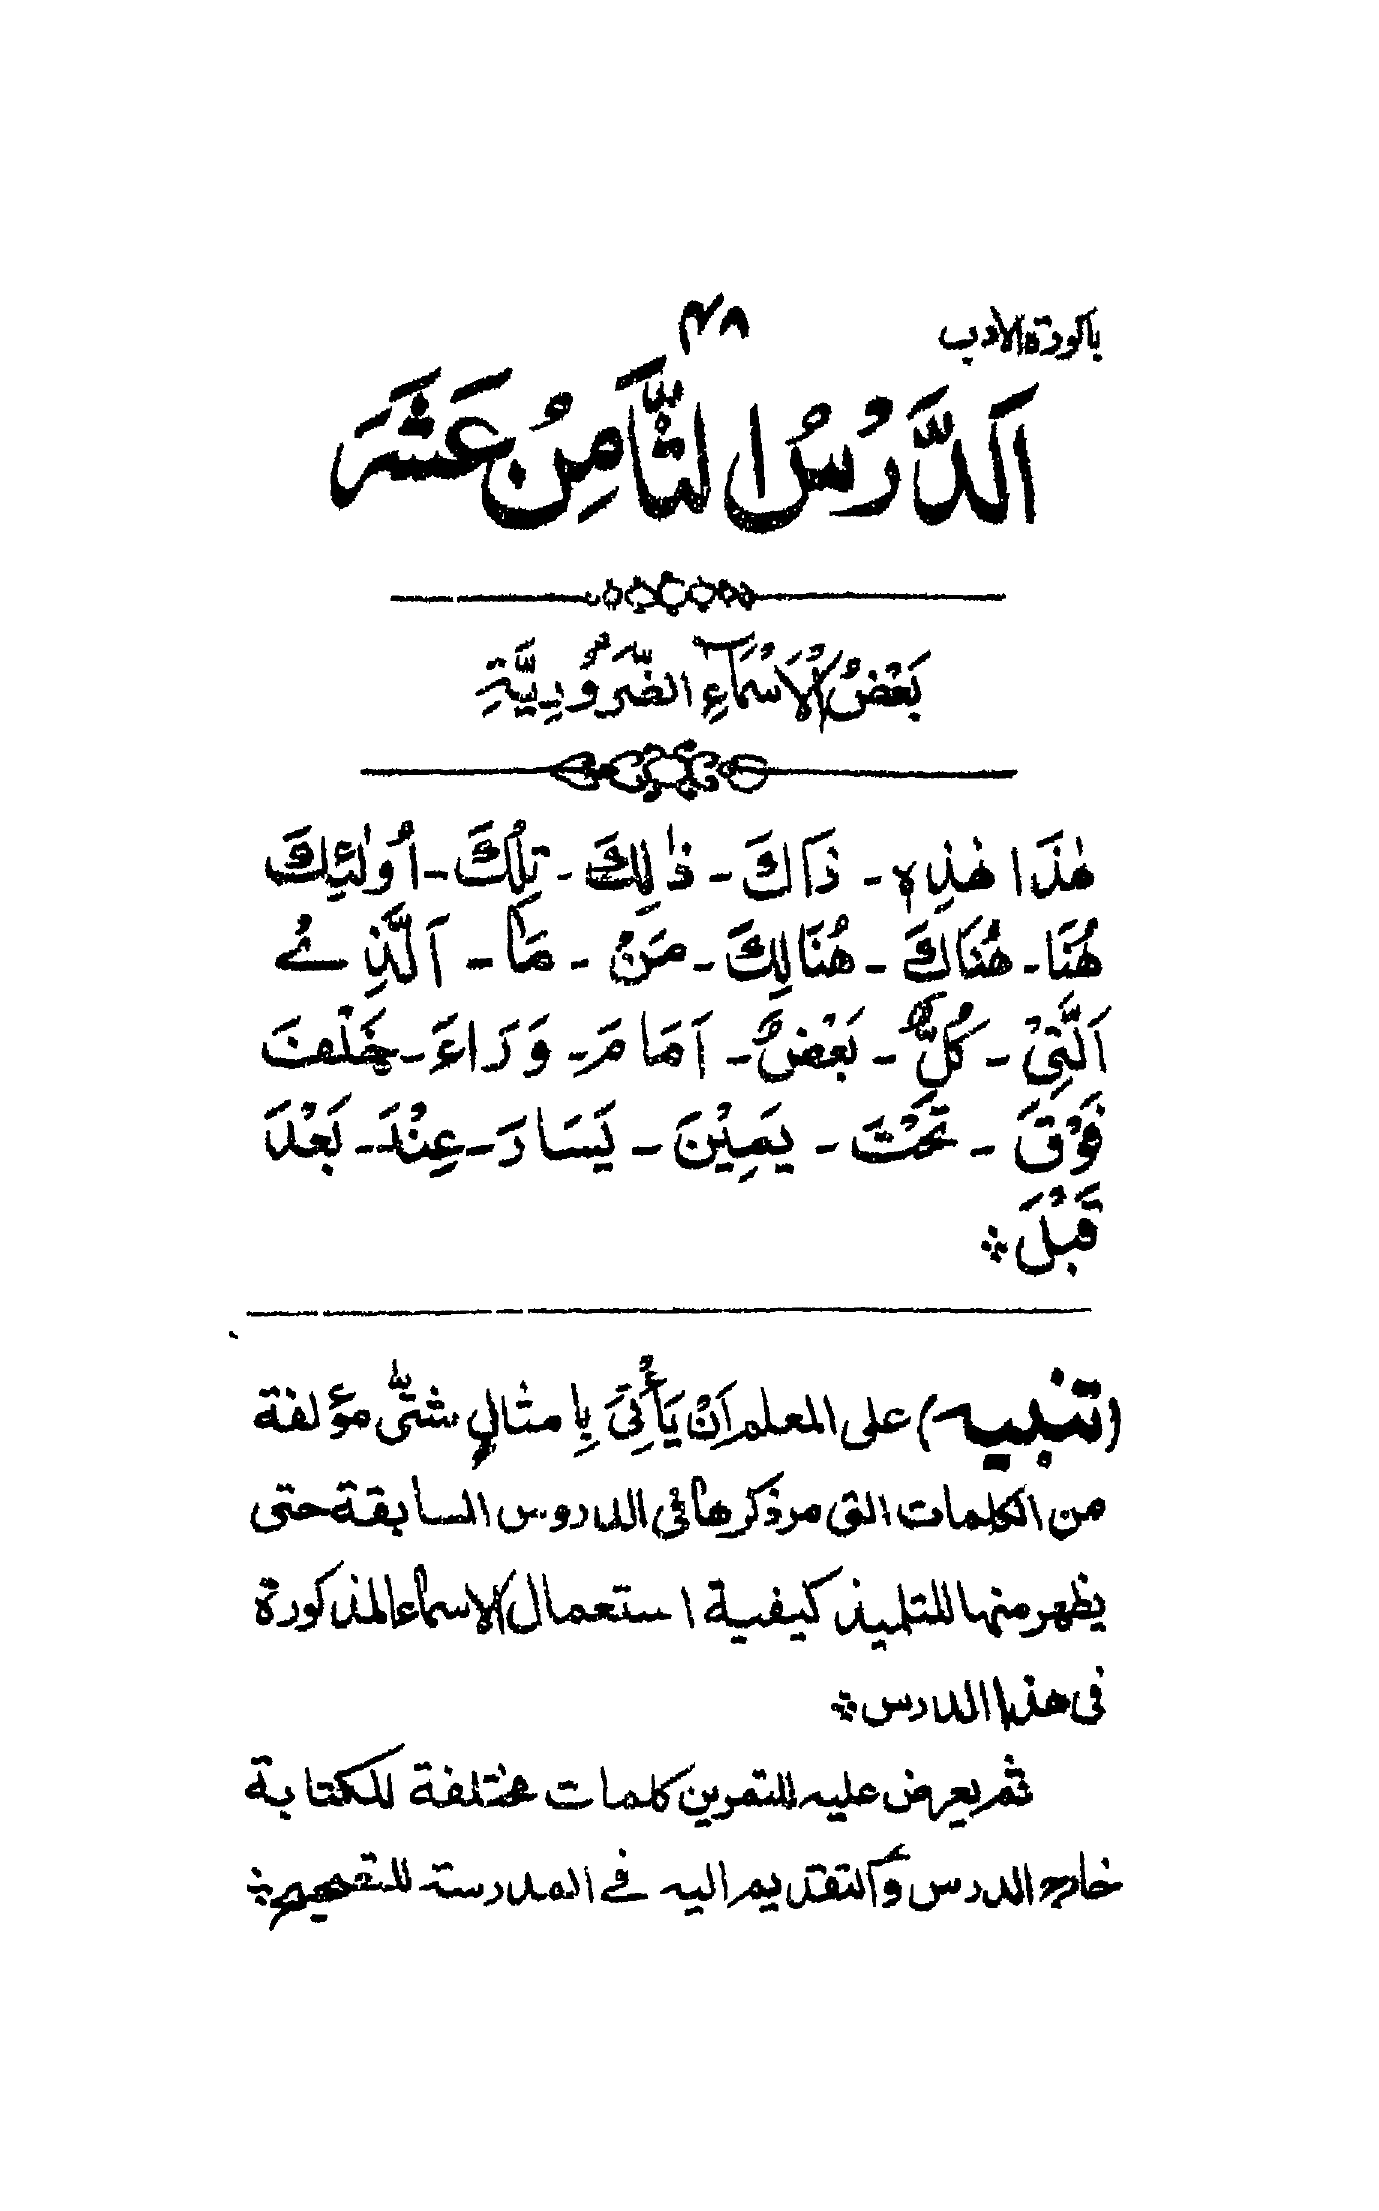 باكورة الادب
۴۸
اَلدَّرْسُ الثَّامِنُ عَشَرَ
بَعْضُ الْاَسْمَآءِ الضَّرُوْرِيَّةِ
هٰذَا هٰذِهٖ - ذَاكَ - ذٰلِكَ - تِلْكَ - اُولٰئِكَ
هُنَا - هُنَاكَ - هُنَالِكَ - مَنْ - مَا - اَلَّذِىْ
اَلَّتِىْ - كُلٌّ - بَعْضٌ - اَمَامَ - وَرَاءَ - خَلْفَ
فَوْقَ - تَحْتَ - يَمِيْنَ - يَسَارَ - عِنْدَ - بَعْدَ
قَبْلَ ⁘
(تنبيه) على المعلم اَنْ يَأْتِىَ بِامثالٍ شتىّٰ مؤلفة
من الكلمات التى مر ذكرها فى الدروس السابقة حتى
يظهر منها للتلميذ كيفية استعمال الاسماء المذكورة
فى هذا الدرس ⁘
ثم يعرض عليه للتمرين كلمات مختلفة للكتابة
خارج الدرس وَالتقديم اليه فى المدرسة للتصحيح ⁘